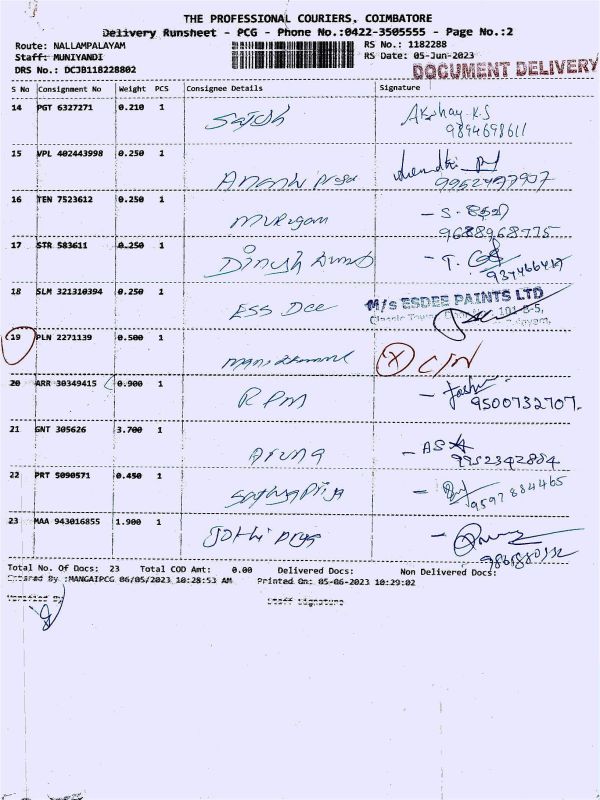 THE PROFESSIONAL COURIERS, COIMBATORE
Delivery Runsheet - PCG - Phone No.:0422-3505555 - Page No.:2
Route: NALLAMPALAYAM
RS No.: 1182288
Staff: MUNIYANDI
RS Date: 05-Jun-2023
DRS No.: DCJB118228802
DOCUMENT DELIVERY
S No Consignment No Weight PCS Consignee Details Signature
14 PGT 6327271 0.210 1 Satish Akshay K.S
9894698611
15 VPL 402443998 0.250 1
Anandhi priya
16 TEN 7523612 0.250 1 Murugan
9688968775
17 STR 583611 0.250 1 Dinesh Kumar
18 SLM 321310394 0.250 1 ESS Dee M/s ESDEE PAINTS LTD
19 PLN 2271139 0.500 1
20 ARR 30349415 0.900 1 RPM
9500732707.
21 GNT 305626 3.700 1 Aruna
9952342884
22 PRT 5090571 0.450 1 Sathya Priya
9597884465
23 MAA 943016855 1.900 1 Jothi priya
Total No. Of Docs: 23 Total COD Amt: 0.00 Delivered Docs: Non Delivered Docs:
Entered By :MANGAIPCG 06/05/2023 10:28:53 AM Printed On: 05-06-2023 10:29:02
Verified By Staff Signature